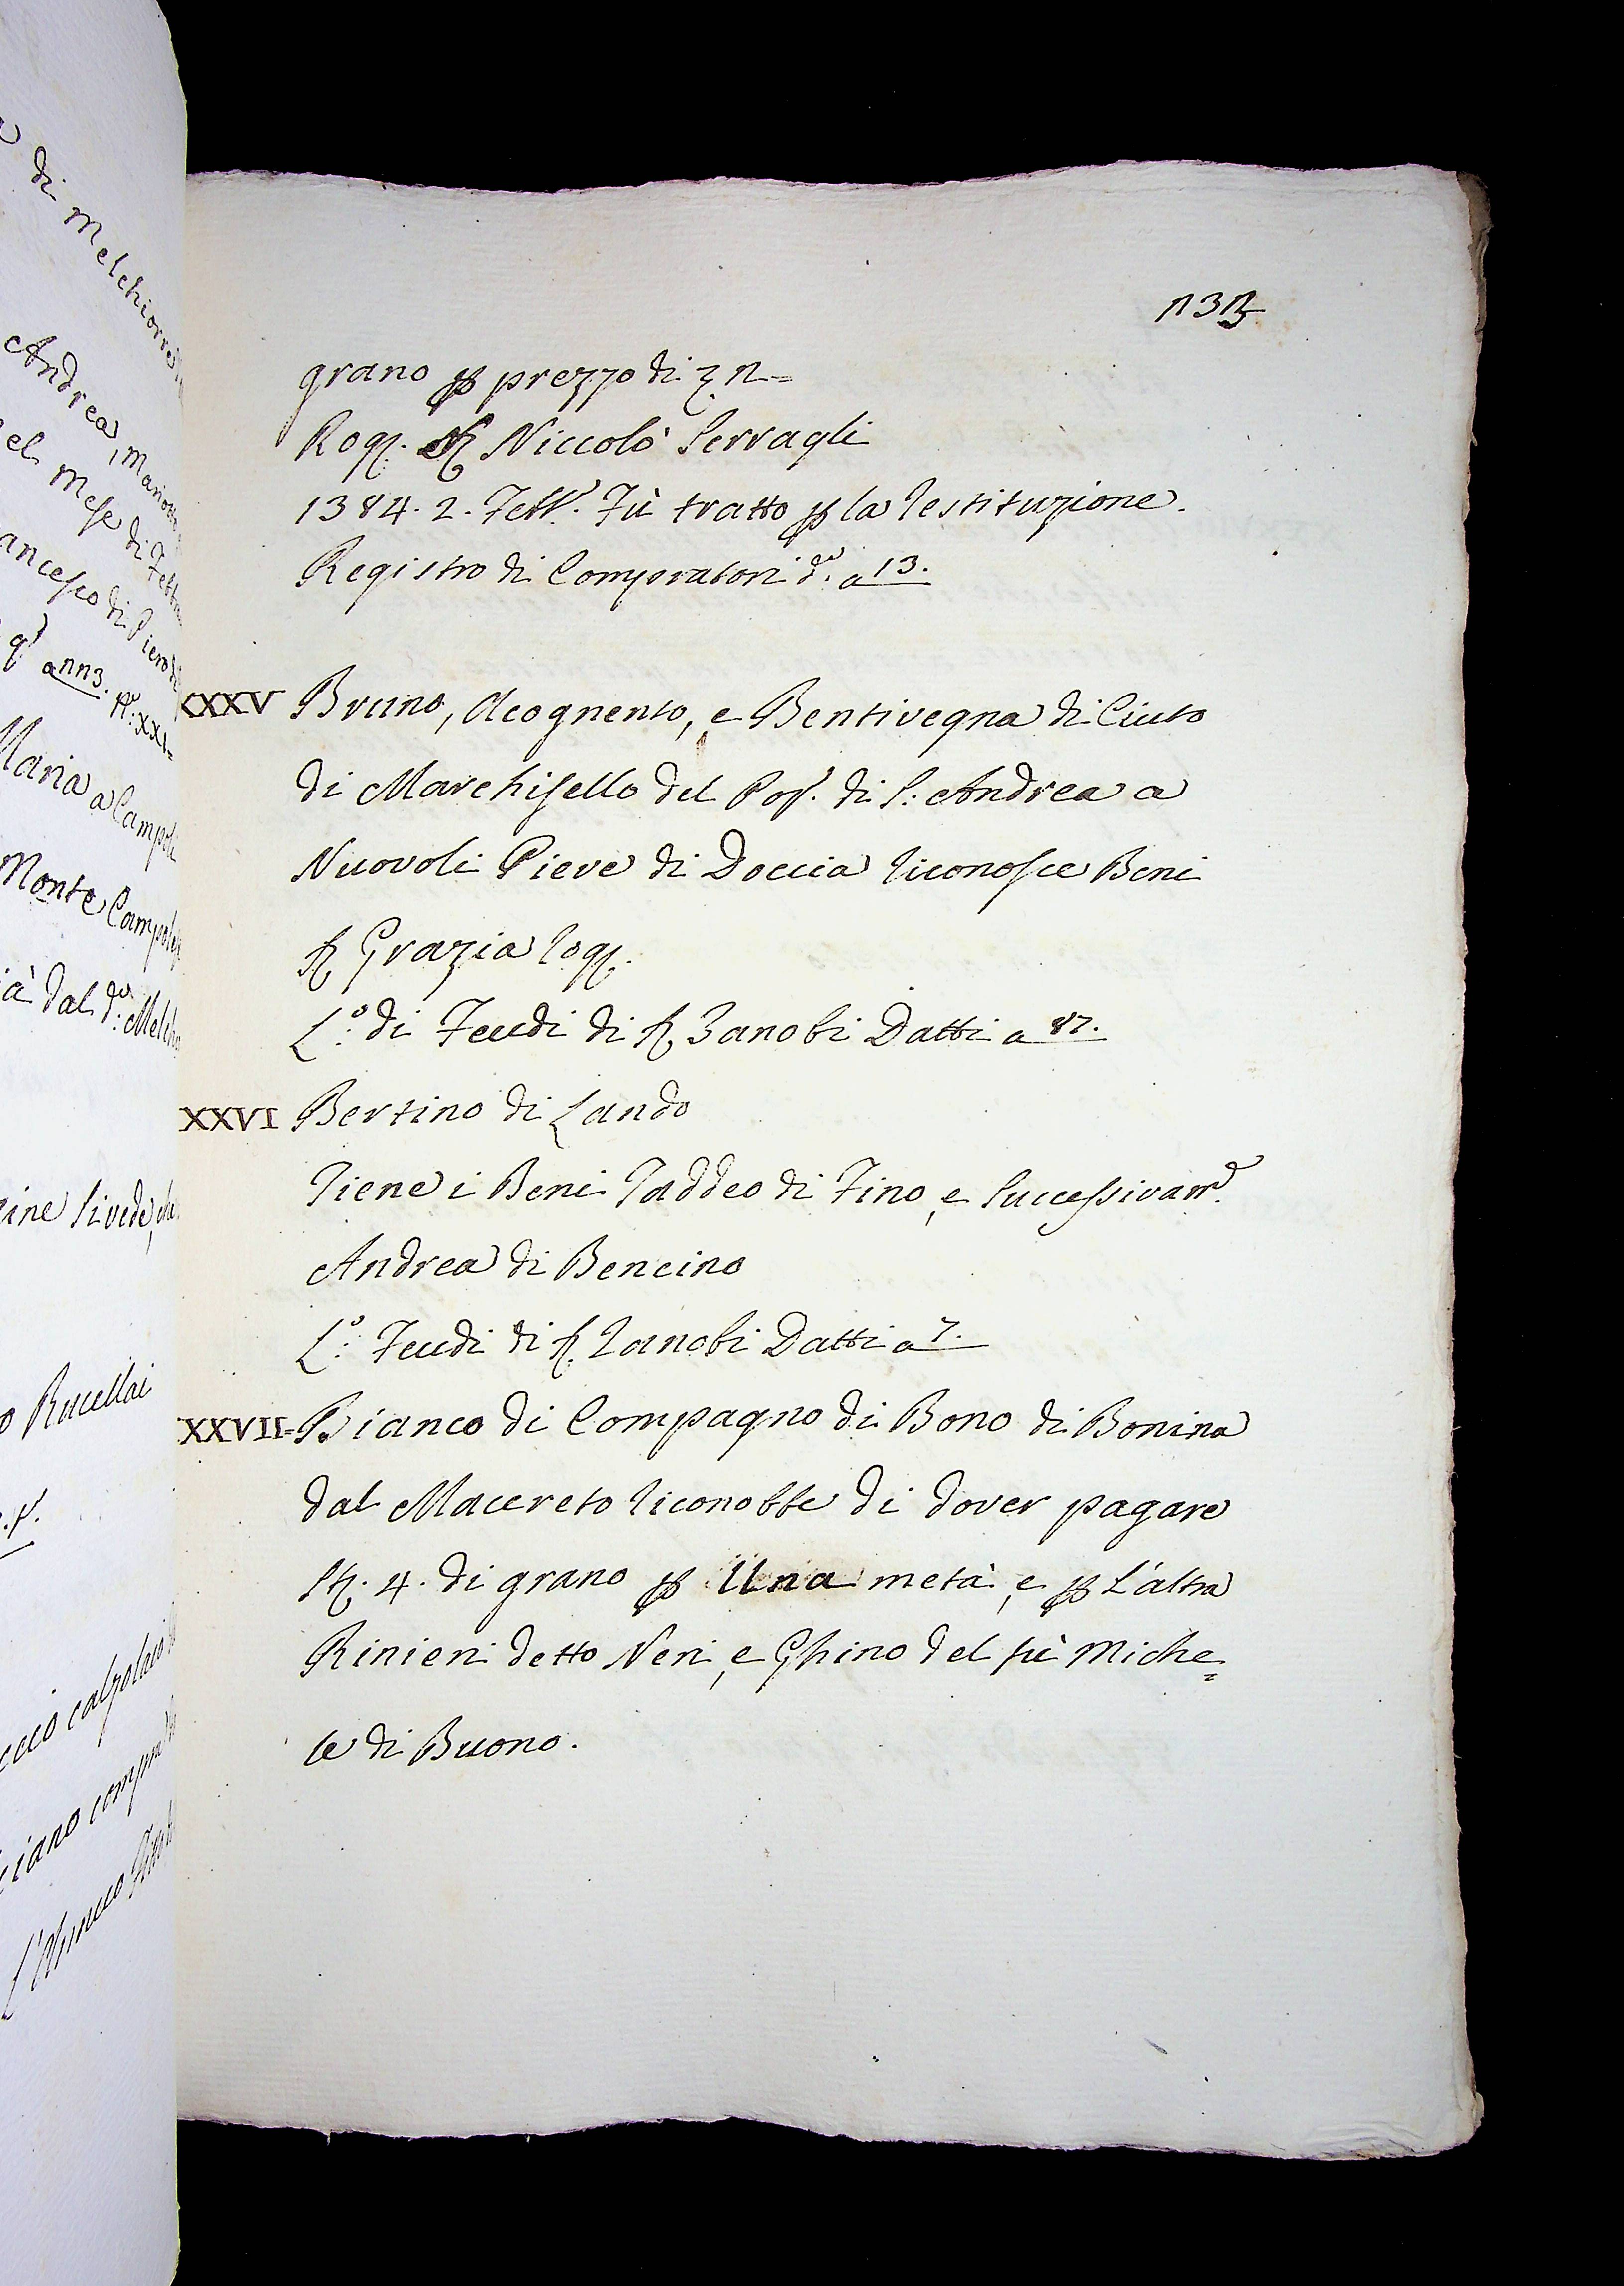 grano p prezzo di
Rog. Niccolò Serragli
1384. 2. Febb.º Fù tratto p la restituzione.
Registro di Compratori d.º a 13.
XXXV Bruno, Acognento, e Bentivegna di Ciuto
di Marchisello del Pop. di S: Andrea a
Nuovoli Pieve di Doccia riconosce Beni
Sr. Grazia rog.
L.º di Feudi di Sr. Zanobi Datti a 87.
XXVI Bertino di Lando
Tiene i Beni Taddeo di Fino, e successivam.e
Andrea di Bencino
L.º Feudi di Sr. Zanobi Datti a 7.
XXVII= Bianco di Compagno di Bono di Bonina
dal Macereto riconobbe di dover pagare
St. 4. di grano p Una metà, e p L'altra
Rinieri detto Neri, e Ghino del fù Miche=
le di Buono.
di Melchiorre
Andrea, Mariotto
el Mese di Febb
ancesco di Piero
q.º a 113. n.º XXI=
Maria a Campoli
Monte Campoli
ià dal d.º Melch
ine si vede, che
o Rucellai
ccio calzolaio
ciano compra